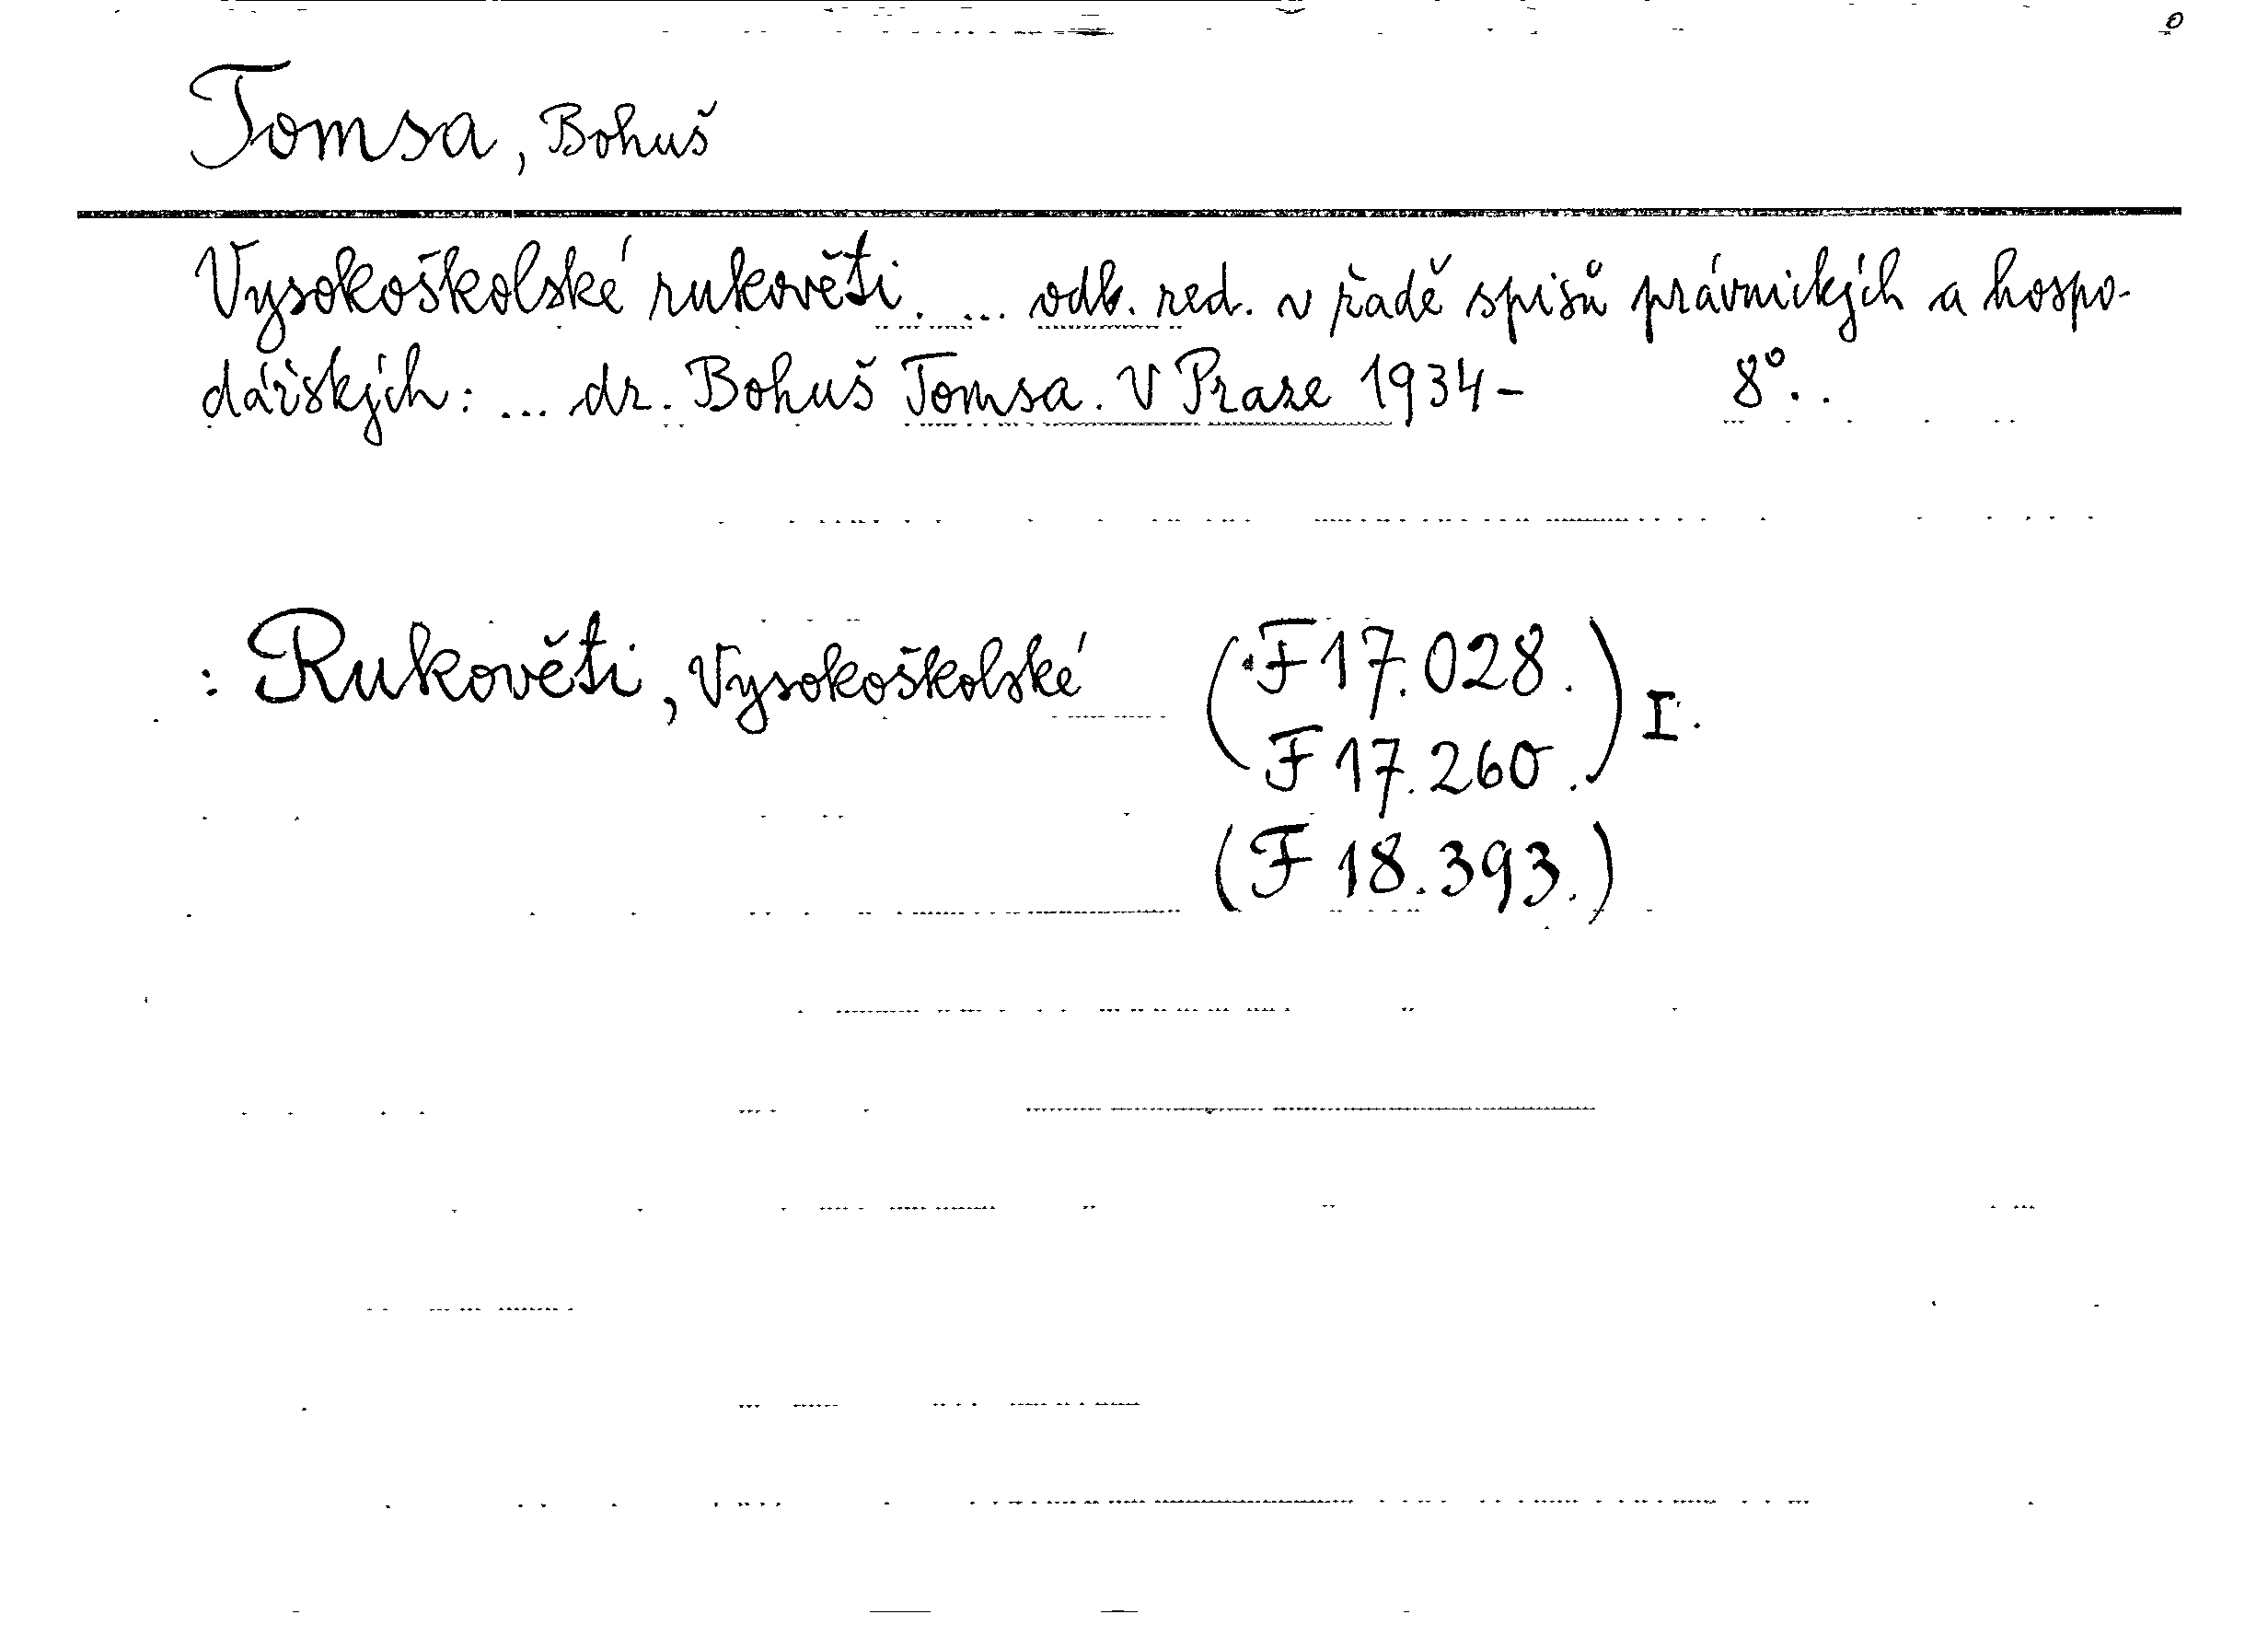 Tomsa, Bohuš
Vysokoškolské rukověti. ... odb. red. v řadě spisů právnických a hospo-
dářských: ... dr. Bohuš Tomsa. V Praze 1934- 8°..
: Rukověti, Vysokoškolské (F 17.028.
F 17.260.) I.
(F 18.393.)